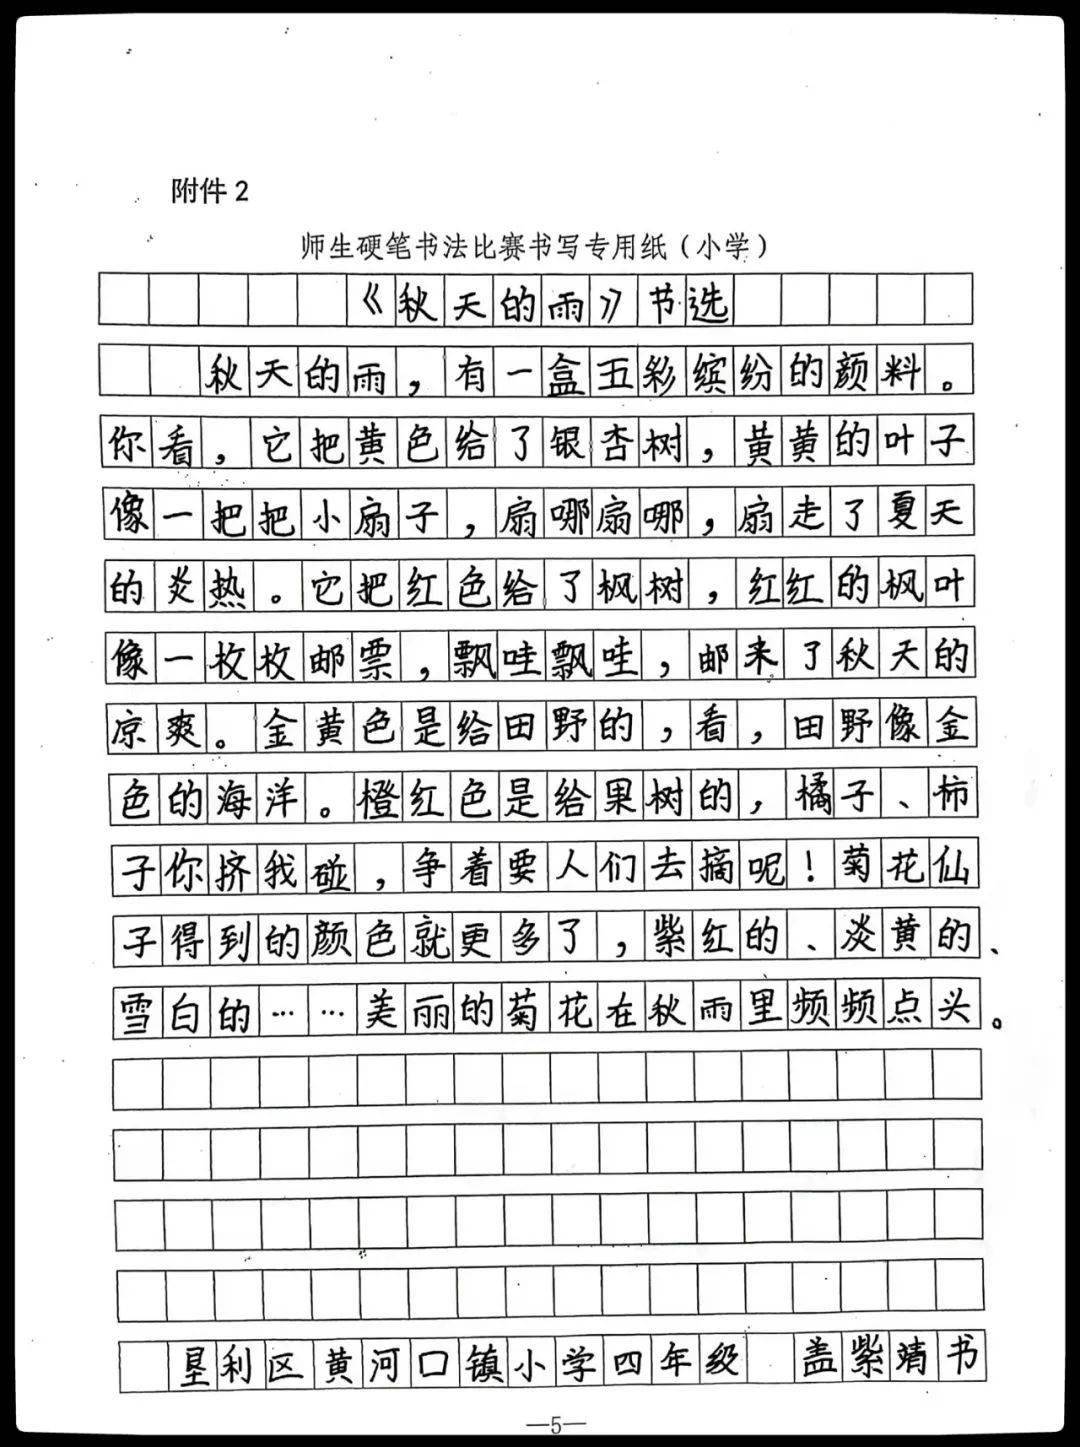 附件2
师生硬笔书法比赛书写专用纸（小学）
《秋天的雨》节选
秋天的雨，有一盒五彩缤纷的颜料。
你看，它把黄色给了银杏树，黄黄的叶子
像一把把小扇子，扇哪扇哪，扇走了夏天
的炎热。它把红色给了枫树，红红的枫叶
像一枚枚邮票，飘哇飘哇，邮来了秋天的
凉爽。金黄色是给田野的，看，田野像金
色的海洋。橙红色是给果树的，橘子、柿
子你挤我碰，争着要人们去摘呢！菊花仙
子得到的颜色就更多了，紫红的、淡黄的、
雪白的……美丽的菊花在秋雨里频频点头。
垦利区黄河口镇小学四年级 盖紫靖书
—5—